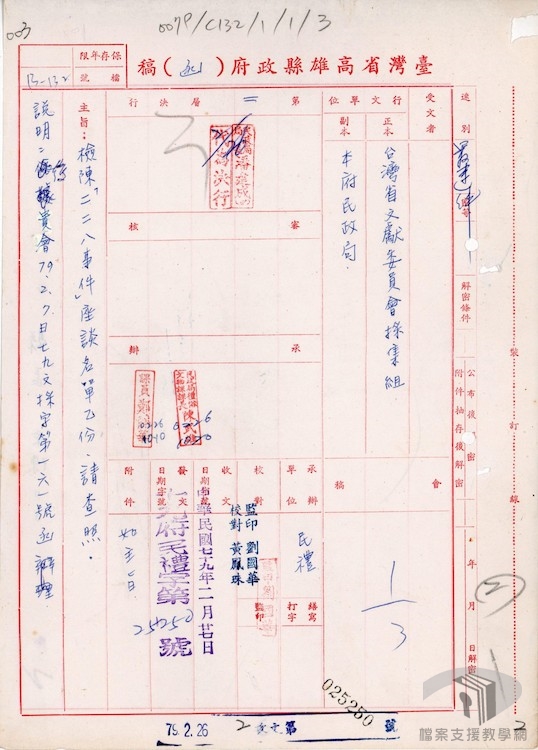 003
0079/C132/1/1/3
臺灣省高雄縣政府（函）稿
保存年限
檔號
13-132
速別
最速件
密等
解密條件
公布後解密
附件抽存後解密
年 月 日解密
受文者
行文單位
正本
台灣省文獻委員會採集組
副本
本府民政局.
第二層決行
為決行
審核
承辦
會稿
承辦單位
民禮
繕寫
打字
校對
監印
監印 劉國華
校對 黃鳳珠
收文
發文
日期
字號
中華民國七九年二月廿七日
府民禮字第 號
25250
附件
如主旨.
主旨：檢陳「二二八事件」座談名單乙份，請查照。
說明：依據貴會79.2.9日七九文採字第一六一號函辦理.
1/3
裝
訂
線
②
025250
79.2.26
文第 號
2
檔案支援教學網